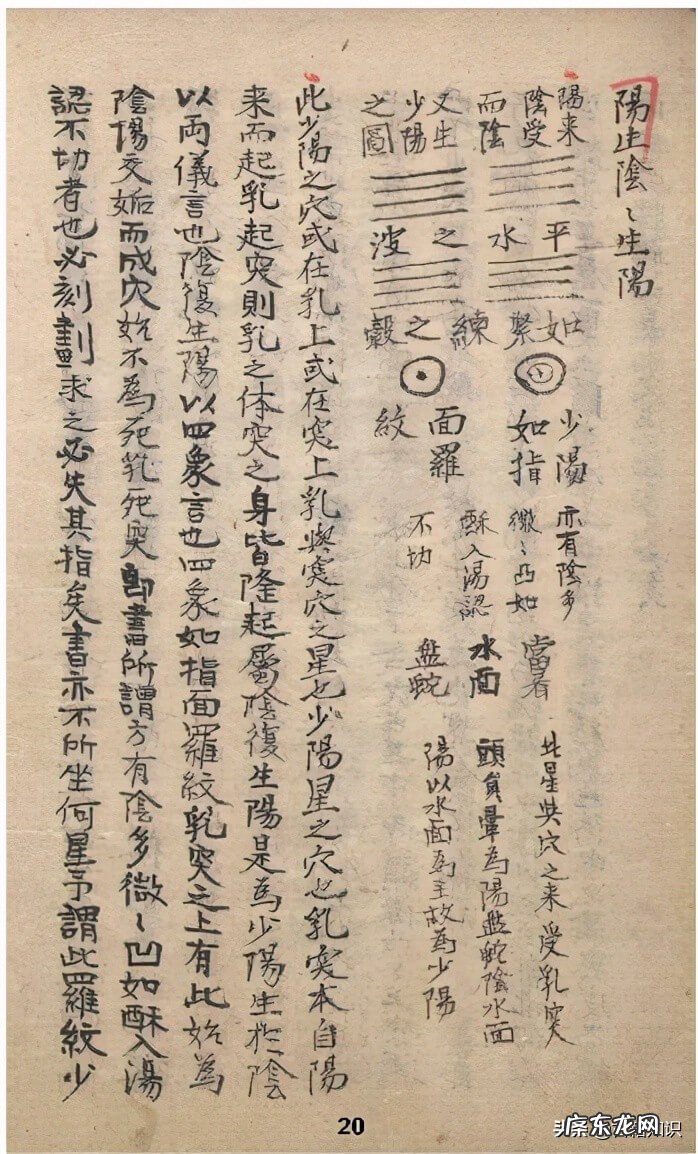 陽生陰〻生陽
陽来
陰受
而陰
又生
少陽
之圖
平水之波
如聚練之縠
少陽
如指
面羅
紋
亦有陰多
微〻凸如
酥入湯認
不切
當看
水面
盤蛇
此星與穴之来受乳突
頭貟暈為陽盤蛇陰水面
陽以水面為主故為少陽
此少陽之穴或在乳上或在突上乳與突穴之星也少陽星之穴也乳突本自陽
来而起乳起突則乳之体突之身皆隆起屬陰復生陽是為少陽生於陰
以両儀言也陰復生陽以四象言也四象如指面羅紋乳突之上有此始為
陰陽交姤而成穴始不為死乳死突即書所謂方有陰多微〻凹如酥入湯
認不切者也必刻劃求之必失其指矣書亦不所坐何星予謂此羅紋少
20
头条
东龙网
知识